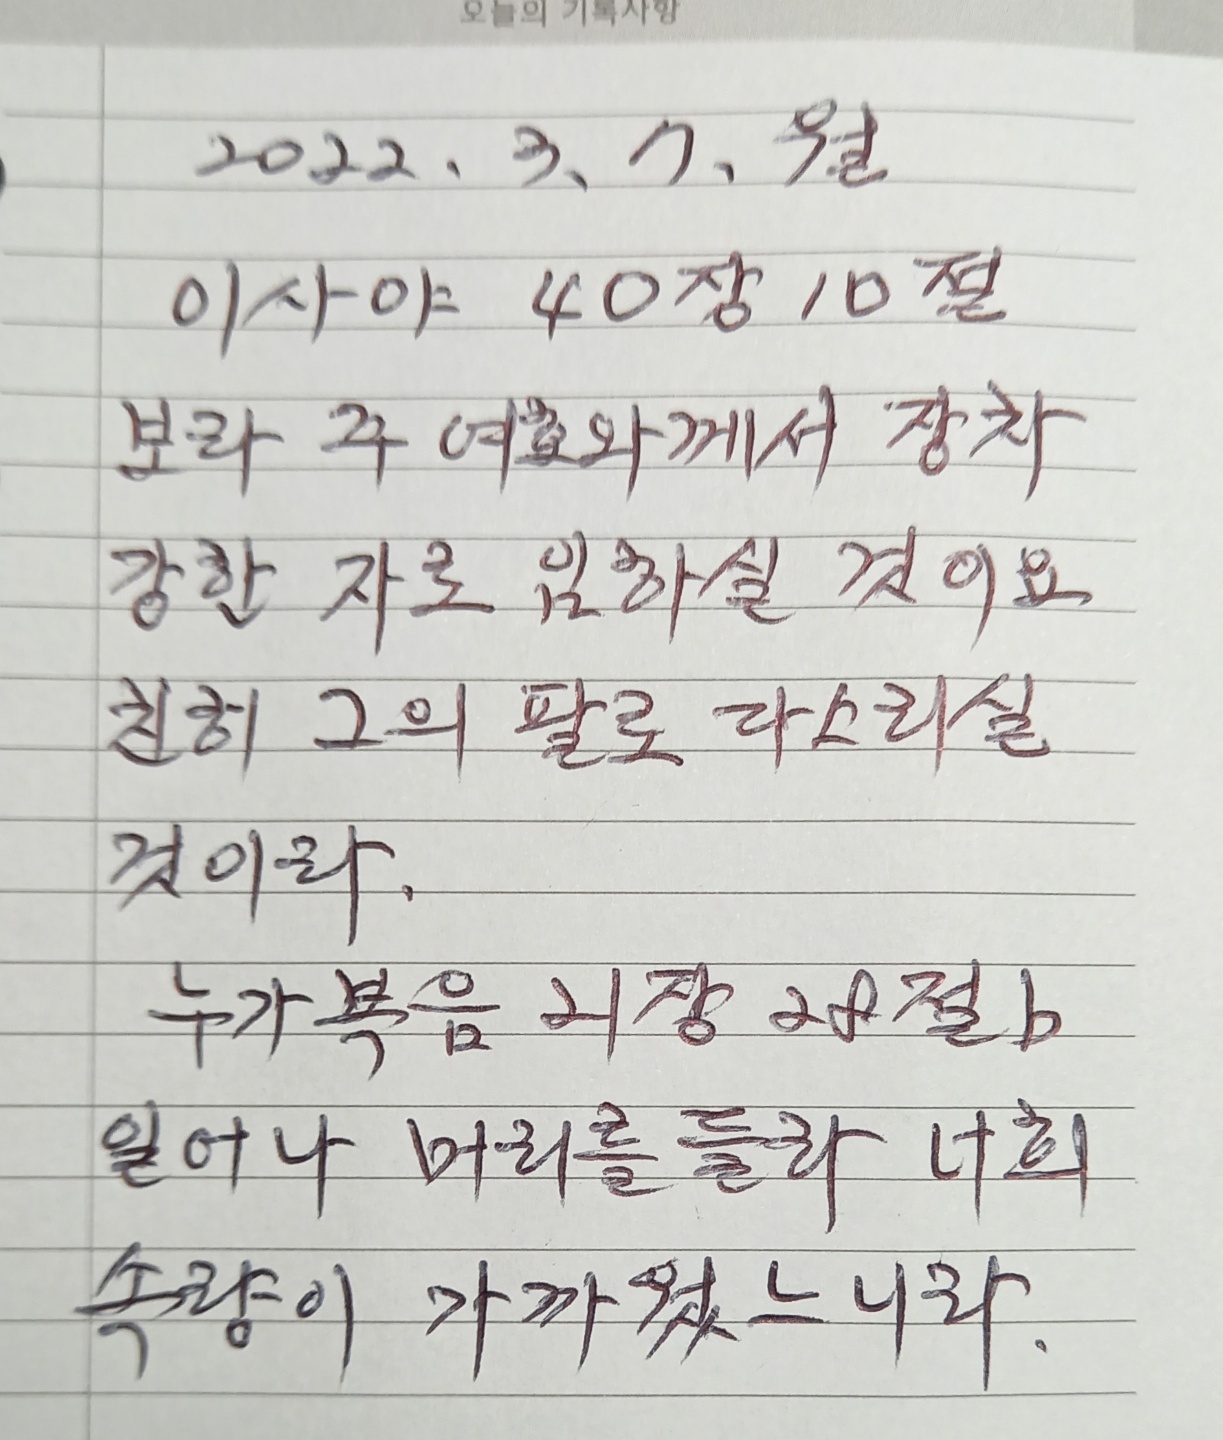 오늘의 기록사항
2022. 3. 7. 월
이사야 40장 10절
보라 주 여호와께서 장차
강한 자로 임하실 것이요
친히 그의 팔로 다스리실
것이라.
누가복음 21장 28절b
일어나 머리를 들라 너희
속량이 가까웠느니라.